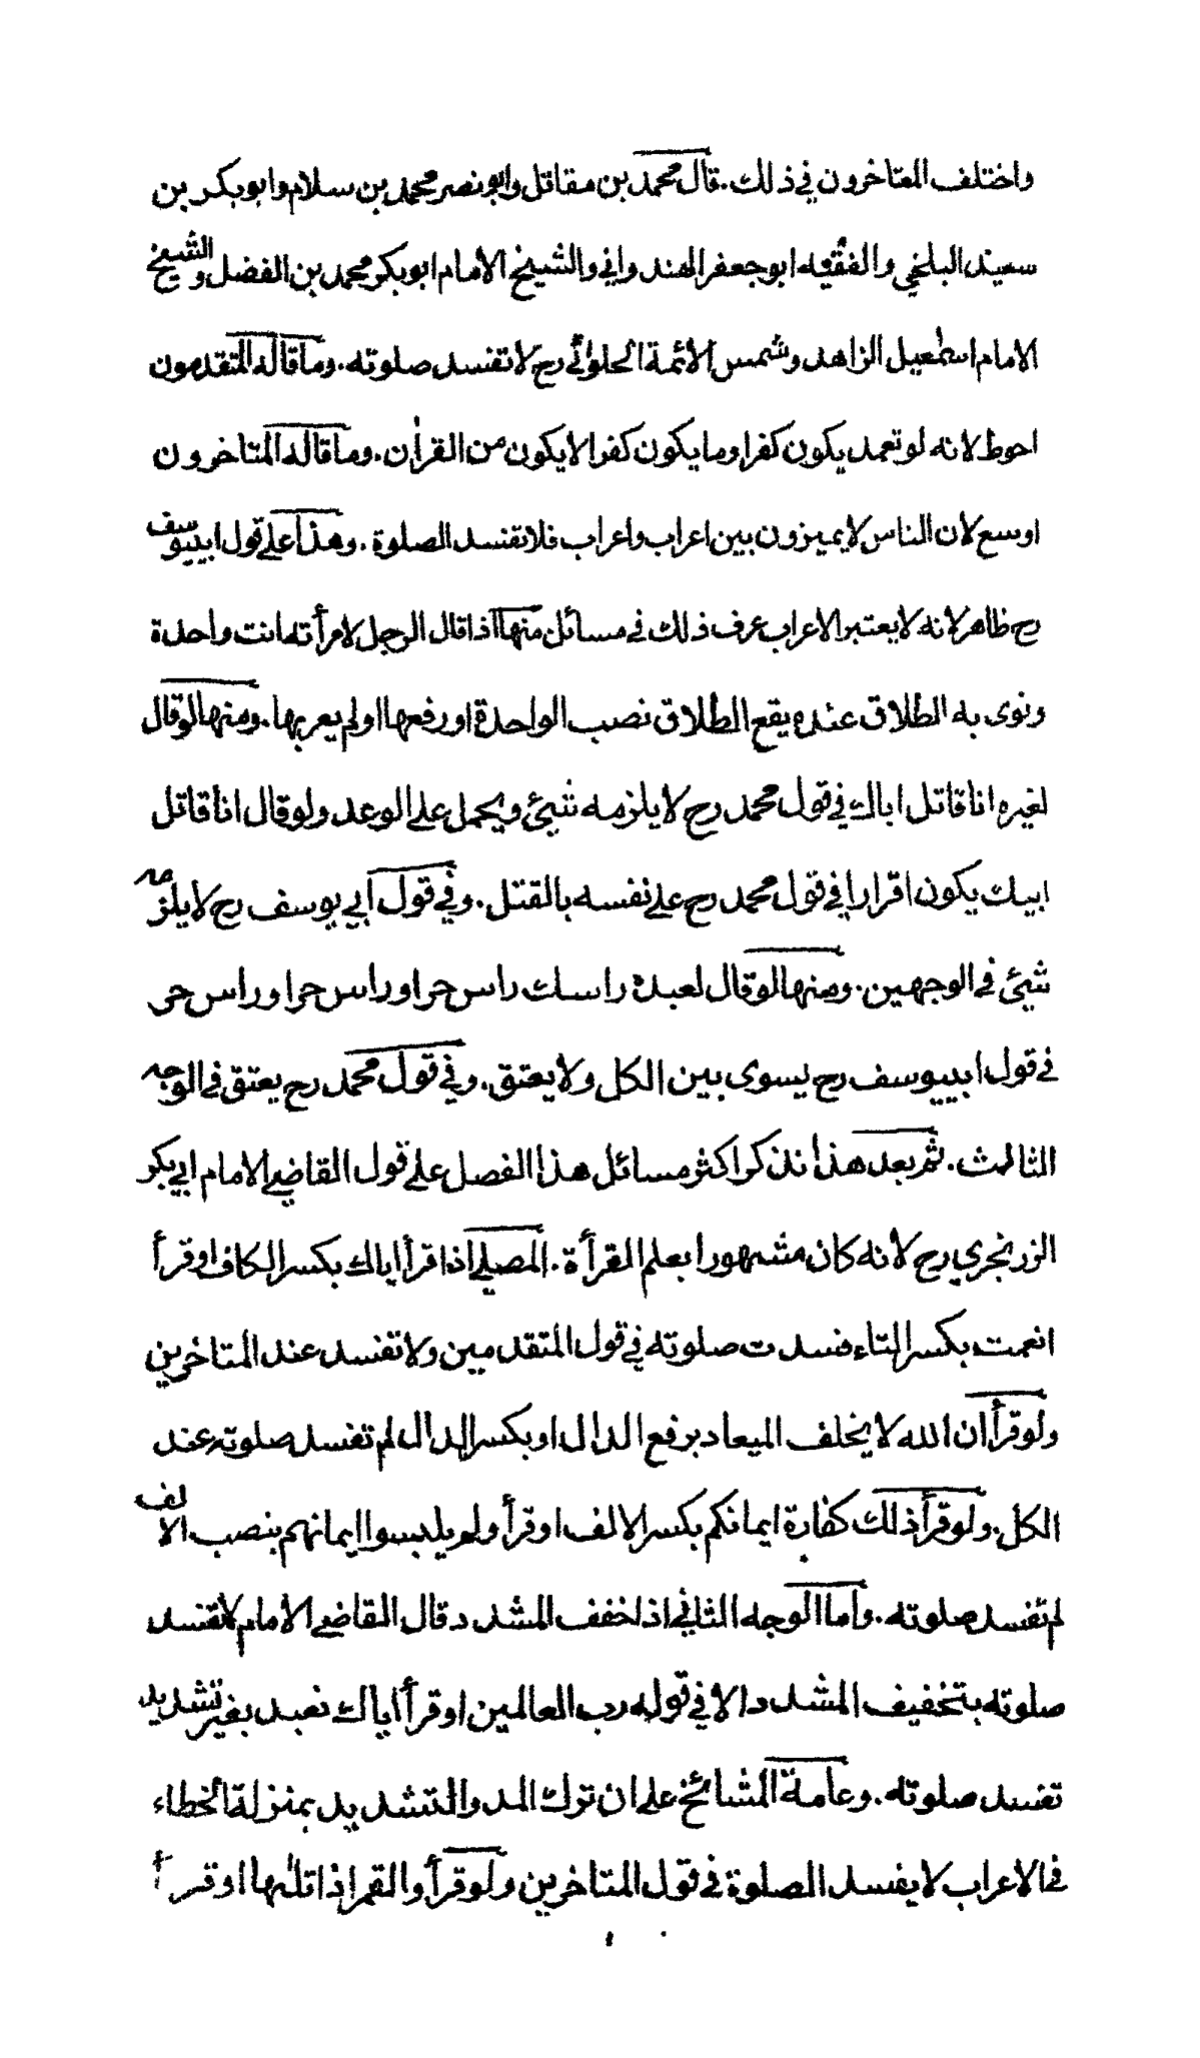 واختلف المتاخرون في ذلك. قال محمد بن مقاتل وابو نصر محمد بن سلام وابو بكر بن
سعيد البلخي والفقيه ابو جعفر الهندواني والشيخ الامام ابو بكر محمد بن الفضل والشيخ
الامام اسمعيل الزاهد وشمس الائمة الحلوائي رح لا تفسد صلوته. وما قاله المتقدمون
احوط لانه لو تعمد يكون كفرا وما يكون كفرا لا يكون من القران. وما قاله المتاخرون
اوسع لان الناس لا يميزون بين اعراب واعراب فلا تفسد الصلوة. وهذا على قول ابييوسف
رح ظاهر لانه لا يعتبر الاعراب عرف ذلك في مسائل منها اذا قال الرجل لامرأته انت واحدة
ونوى به الطلاق عنده يقع الطلاق نصب الواحدة او رفعها او لم يعربها. ومنها لو قال
لغيره انا قاتل اباك في قول محمد رح لا يلزمه شيئ ويحمل على الوعد ولو قال انا قاتل
ابيك يكون اقرارا في قول محمد رح على نفسه بالقتل. وفي قول ابي يوسف رح لا يلزمه
شيئ في الوجهين. ومنها لو قال لعبده راسك راس حر او راس حرا وراس حر
في قول ابييوسف رح يسوى بين الكل ولا يعتق. وفي قول محمد رح يعتق في الوجه
الثالث. ثم بعد هذا نذكر اكثر مسائل هذا الفصل على قول القاضي الامام ابي بكر
الزرنجري رح لانه كان مشهورا بعلم القرأة. المصلي اذا قرأ اياك بكسر الكاف او قرأ
انعمت بكسر التاء فسدت صلوته في قول المتقدمين ولا تفسد عند المتاخرين
ولو قرأ ان الله لا يخلف الميعاد برفع الدال او بكسر الدال لم تفسد صلوته عند
الكل. ولو قرأ ذلك كفارة ايمانكم بكسر الالف او قرأ ولم يلبسوا ايمانهم بنصب الالف
لم تفسد صلوته. واما الوجه الثاني اذا خفف المشدد قال القاضي الامام لا تفسد
صلوته بتخفيف المشدد الا في قوله رب العالمين او قرأ اياك نعبد بغير تشديد
تفسد صلوته. وعامة المشائخ على ان ترك المد والتشديد بمنزلة الخطاء
في الاعراب لا يفسد الصلوة في قول المتاخرين ولو قرأ والقمر اذا تلىها او قرأ